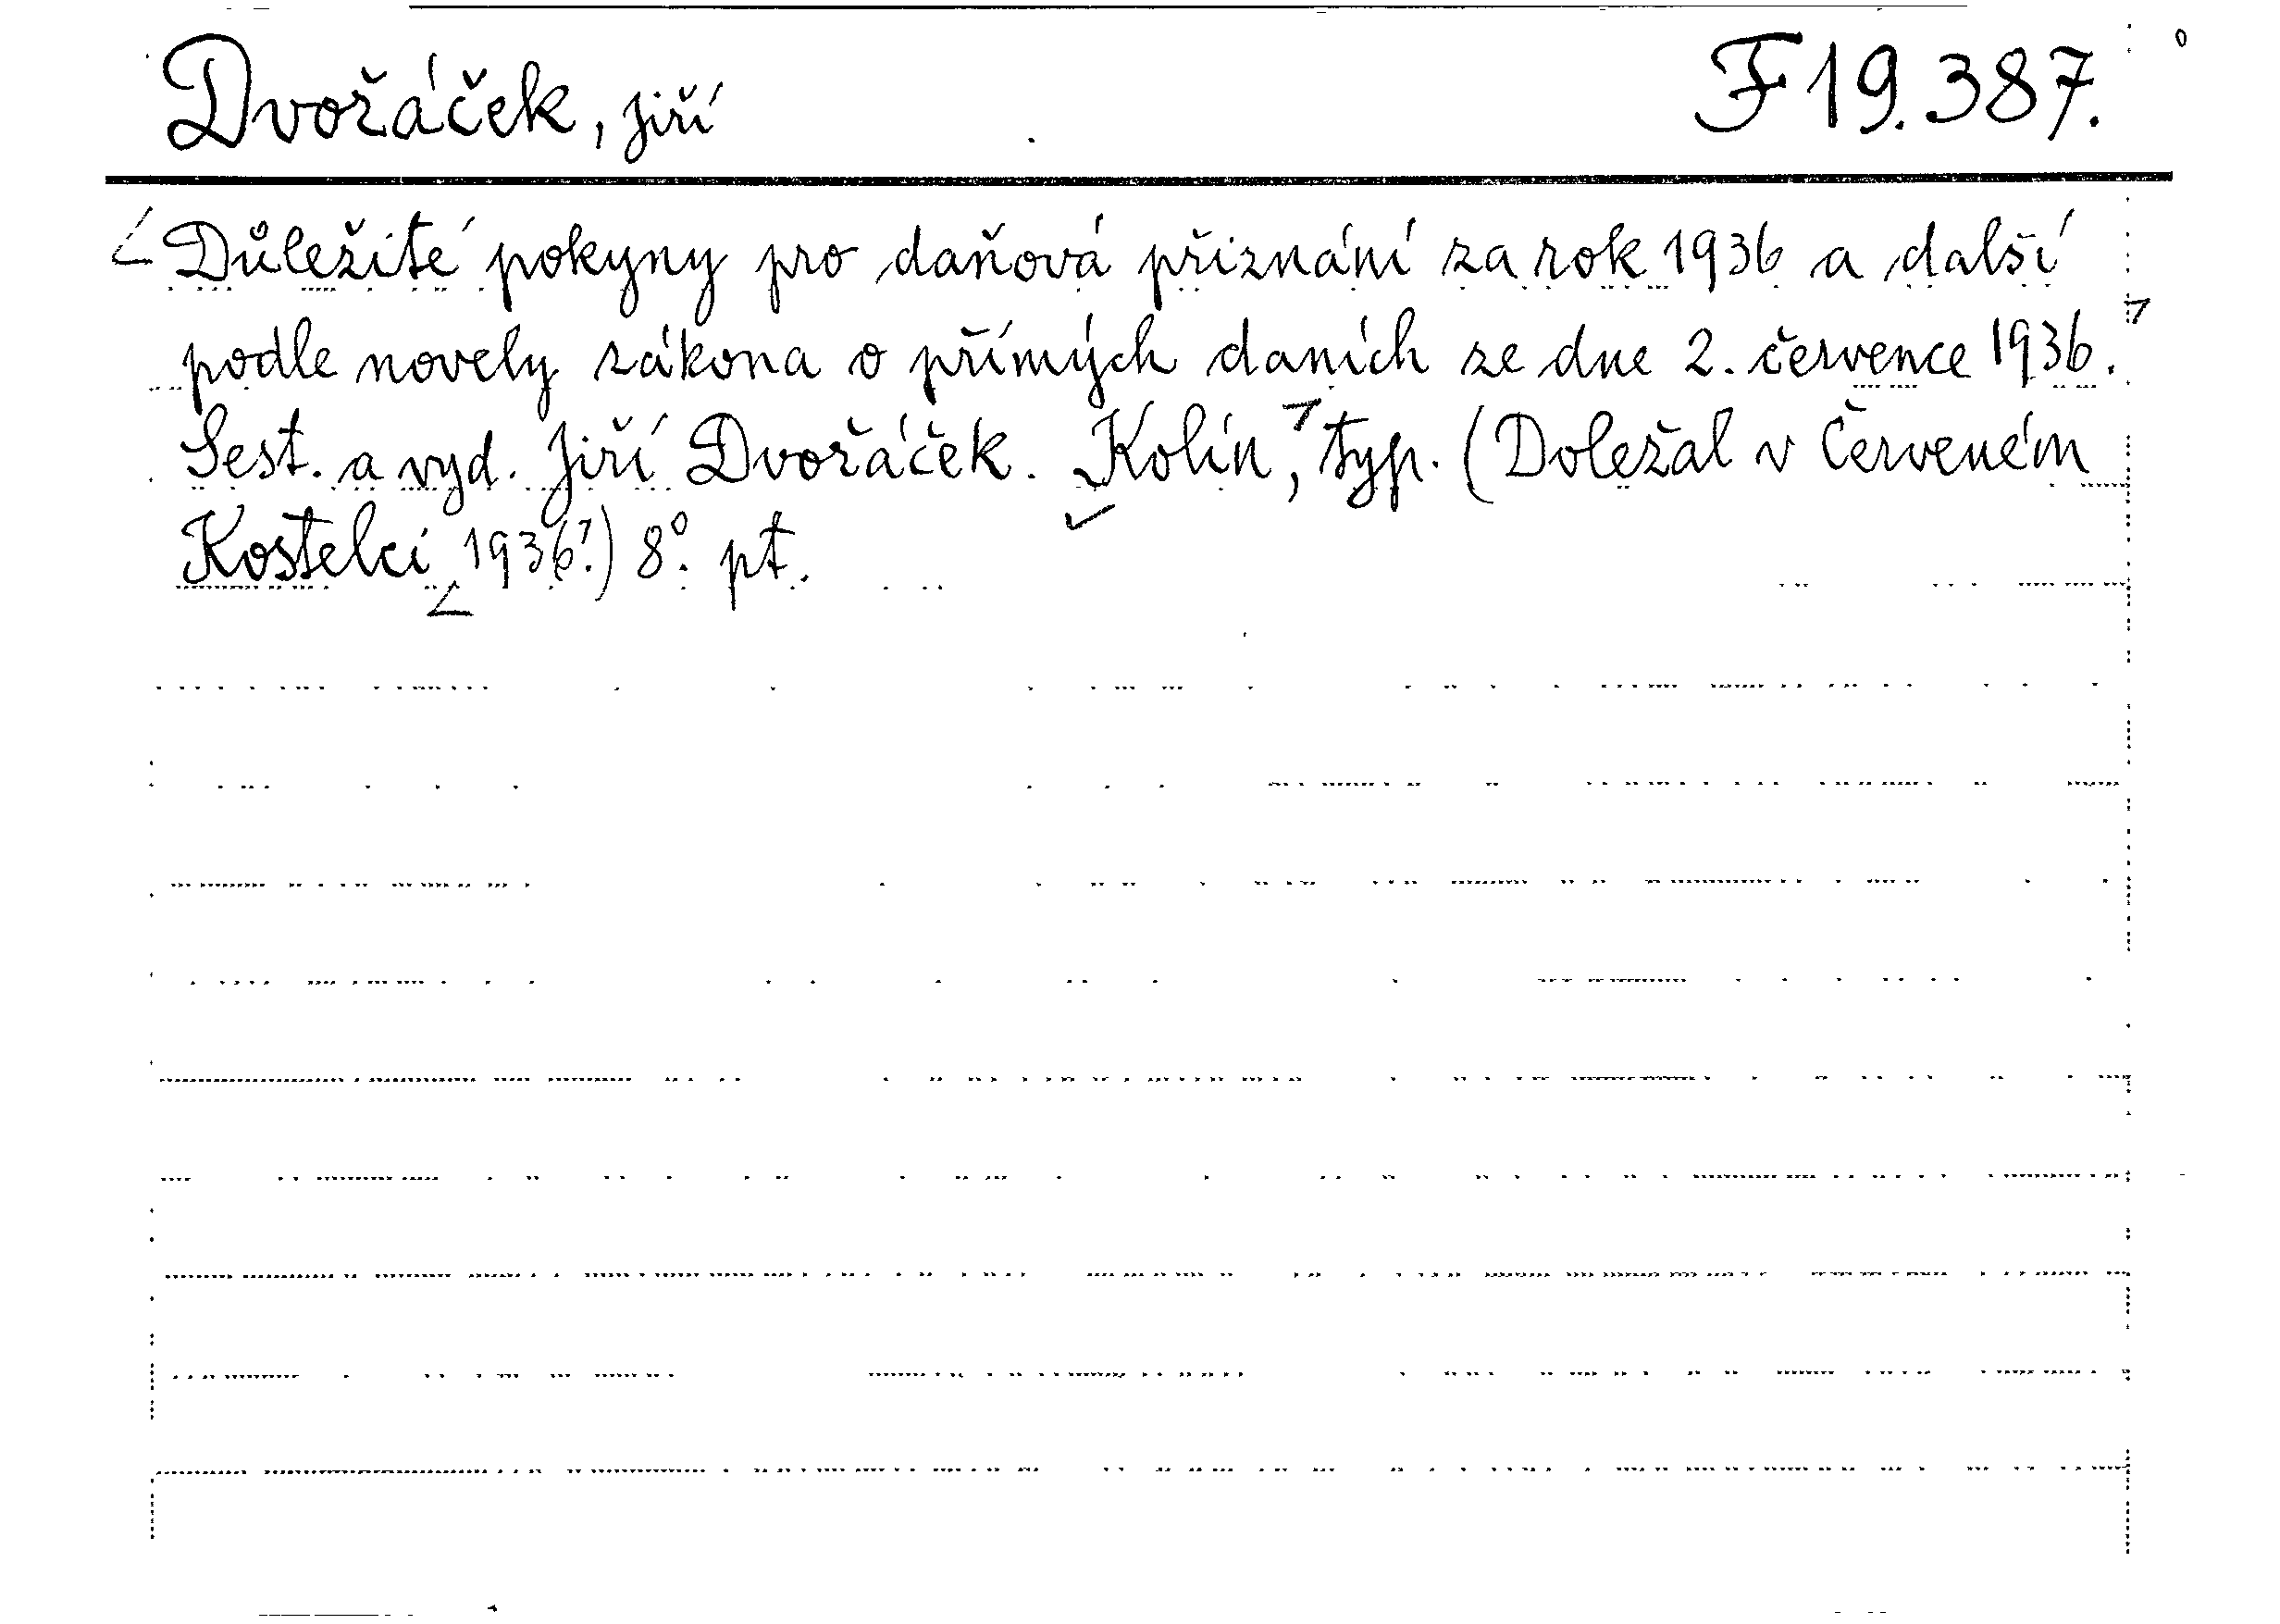 Dvořáček, Jiří F 19.387.
Důležité pokyny pro daňová přiznání za rok 1936 a další
podle novely zákona o přímých daních ze dne 2. července 1936.
Sest. a vyd. Jiří Dvořáček. Kolín, typ. (Doležal v Červeném
Kostelci 1936?) 8° pt.